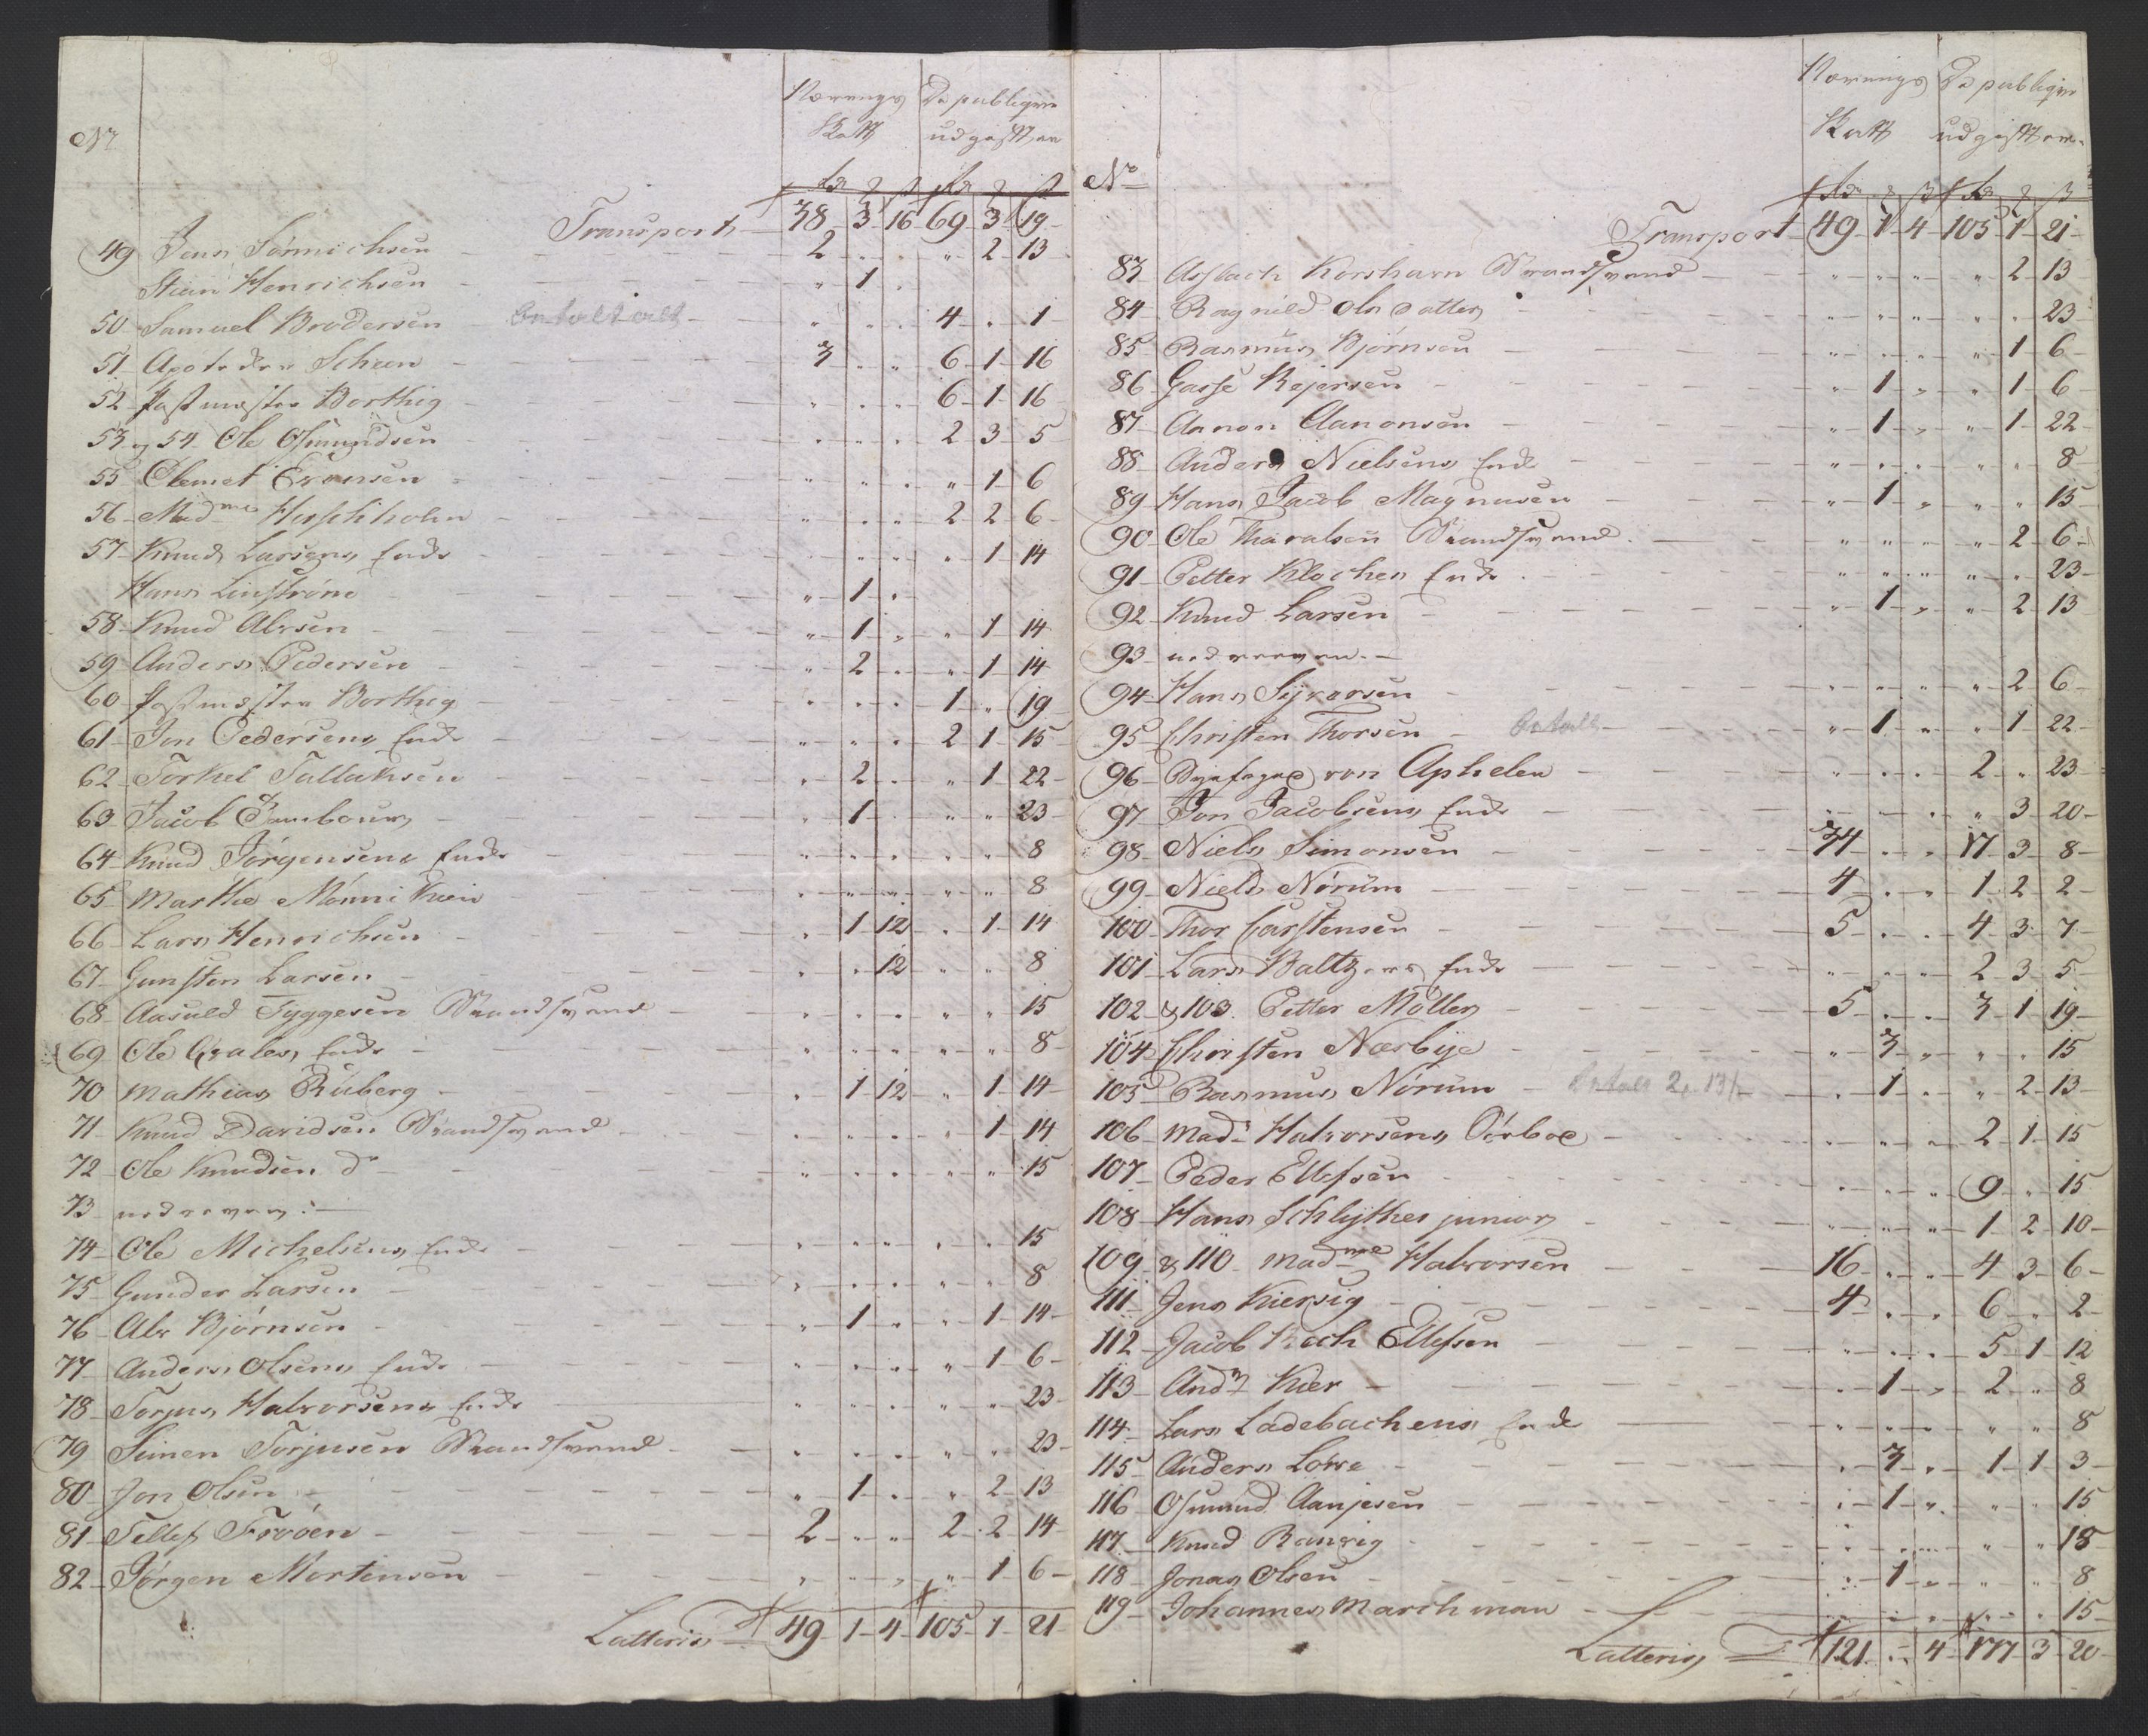 Nr
Nærings De publiqve
Skatt udgifter
Transport 38 3 16 69 3 19
49 Jens Sönnichsen 2 " " " 2 13
Stein Henrichsen " 1 "
50 Samuel Brodersen Betalt alt " " " 4 " 1
51 Apotheker Scheen 3 " " 6 1 16
52 Postmester Borthig " " " 6 1 16
53 og 54 Ole Osmundsen " " " 2 3 5
55 Clemet Evensen " " " " 1 6
56 Madme Hirschholm " " " 2 2 6
57 Knud Larsens Enke " " " " 1 14
Hans Linström " 1 "
58 Knud Abrsen " 1 " " 1 14
59 Anders Pedersen " 2 " " 1 14
60 Postmester Borthig " " " 1 " 19
61 Jon Pedersens Enke " " " 2 1 15
62 Torkel Tallaksen " 2 " " 1 22
63 Jacob Tambour " 1 " " " 23
64 Knud Jörgensens Enke " " " " " 8
65 Marthe Mönniken " " " " " 8
66 Lars Henrichsen " 1 12 " 1 14
67 Gunsten Larsen " " 12 " " 8
68 Aasuld Tyggesen Brandsvend " " " " " 15
69 Ole Grales Enke " " " " " 8
70 Mathias Ruberg " 1 12 " 1 14
71 Knud Davidsen Brandsvend " " " " 1 14
72 Ole Knudsen do " " " " " 15
73 nedreven
74 Ole Michelsens Enke " " " " " 15
75 Gunder Larsen " " " " " 8
76 Abr Björnsen " 1 " " 1 14
77 Anders Olsens Enke " " " " 1 6
78 Torjus Halvorsens Enke " " " " " 23
79 Simen Torjusen Brandsvend " " " " " 23
80 Jon Olsen " 1 " " 2 13
81 Tellef Fröen 2 " " 2 2 14
82 Jörgen Mortensen " " " " 1 6
Latteris 49 1 4 105 1 21
Nærings De publiqve
Skatt udgifter
No
Transport 49 1 4 105 1 21
83 Aslach Korshavn Brandsvend " " " " 2 13
84 Ragnild Ols datter " " " " " 23
85 Rasmus Björnsen " " " " 1 6
86 Gasse Rejersen " 1 " " 1 6
87 Aanon Aanonsen " 1 " " 1 22
88 Anders Nielsens Enke " " " " " 8
89 Hans Jacob Magnusen " 1 " " " 15
90 Ole Tharalsen Brandsvend " " " " 2 6
91 Petter Klochers Enke " " " " " 23
92 Knud Larsen " 1 " " 2 13
93 nedreven
94 Hans Syversen " " " " 2 6
95 Christen Thorsen Betalt " 1 " " 1 22
96 Byefoged von Aphelen " " " 2 " 23
97 Jon Jacobsens Enke " " " " 3 20
98 Niels Simonsen 34 " " 17 3 8
99 Niels Nörum 4 " " 1 2 2
100 Thor Carstensen 5 " " 4 3 7
101 Lars Baltzers Enke " " " 2 3 5
102 & 103 Petter Möller 5 " " 3 1 19
104 Christen Næsbye " 3 " " " 15
105 Rasmus Nörum Betalt 2, 13 " 1 " " 2 13
106 Made Halvorsens Sörboe " " " 2 1 15
107 Peder Ellefsen " " " 9 " 15
108 Hans Schlyther junior " " " 1 2 10
109 & 110 Madme Halvorsen 16 " " 4 3 6
111 Jens Kiersig 4 " " 6 " 2
112 Jacob Koch Ellefsen " " " 5 1 12
113 Andr Kier " 1 " 2 " 8
114 Lars Ladebachens Enke " " " " " 8
115 Anders Löwe " 3 " 1 1 3
116 Osmund Aanjesen " 1 " " " 15
117 Knud Ranvig " " " " " 18
118 Jonas Olsen " 1 " " " 8
119 Johannes Marchman " " " " " 15
Latteris 121 " 4 177 3 20